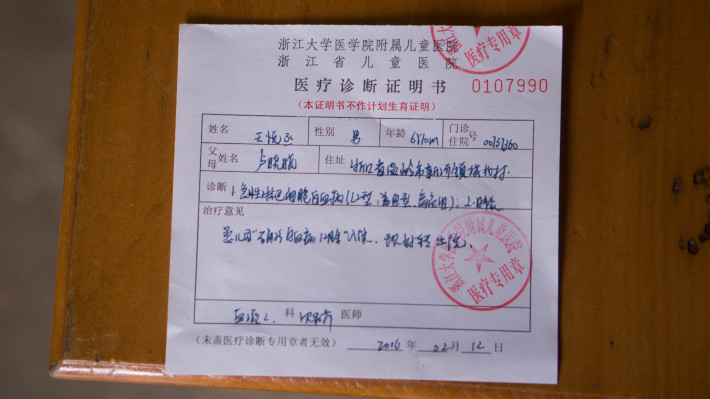 浙江大学医学院附属儿童医院
浙江省儿童医院
医疗诊断证明书
0107990
(本证明书不作计划生育证明)
姓名 王悦丞 性别 男 年龄 6Y10m 门诊住院号 00757360
父母姓名 卢晓晓 住址 浙江省温岭市新河镇塘下村
诊断 1.急性淋巴细胞白血病(L2型、高危组);2.
治疗意见
患儿因"白血病"入院. 现好转出院.
血液2 科 医师
(未盖医疗诊断专用章者无效) 2016 年 02 月 12 日
医疗专用章
浙江大学医学院附属儿童医院
医疗专用章